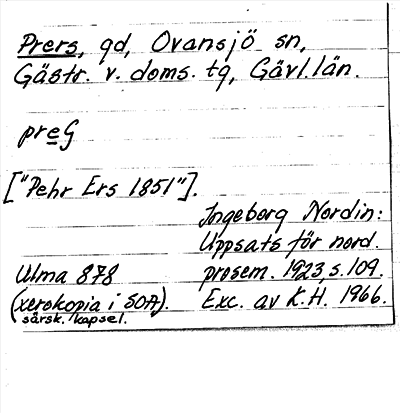 Prers, gd, Ovansjö sn,
Gästr. v. doms. tg, Gävl. län.
preG
["Pehr Ers 1851"].
Ingeborg Nordin:
Uppsats för nord.
Ulma 878 prosem. 1923, s. 109.
(xerokopia i SOA). Exc. av K.H. 1966.
särsk. kapsel.